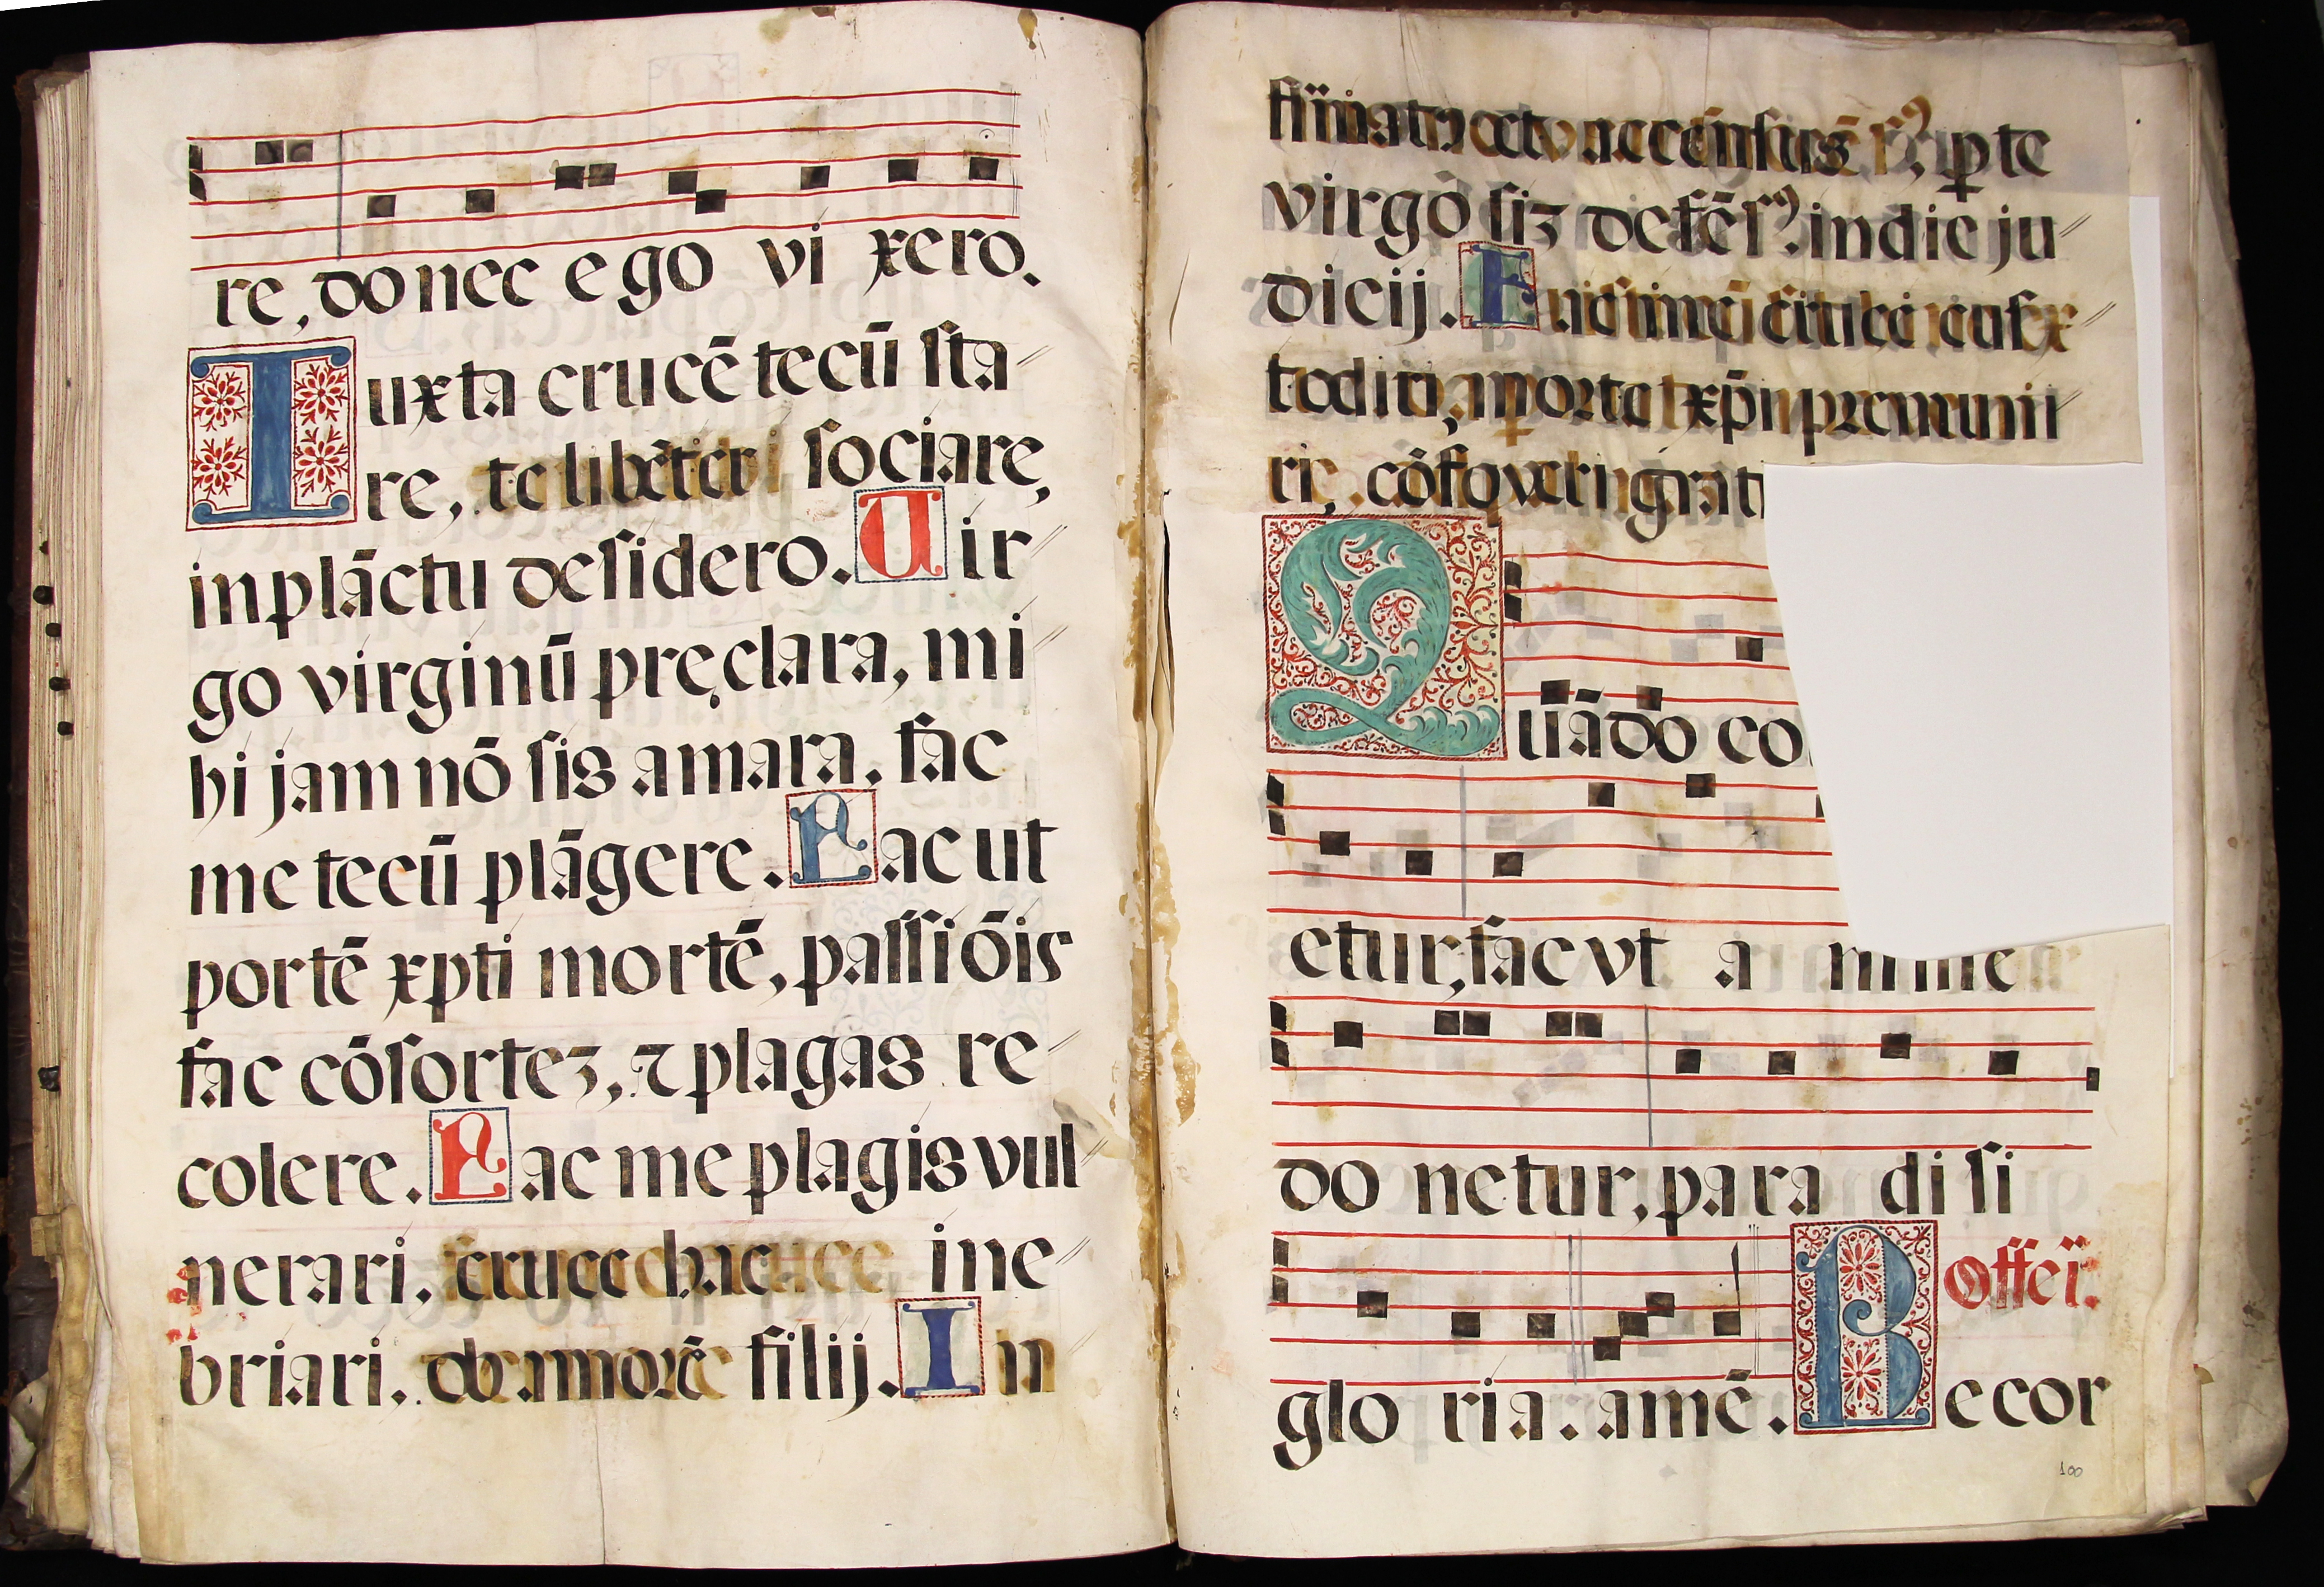 re, do nec e go vi xero.
Iuxta crucē tecū sta
re, te libēter sociare,
in plāctu desidero. Vir
go virginū pręclara, mi
hi jam nō sis amara, fac
me tecū plāgere. Fac ut
portē xp̄ti mortē, passiōis
fac cōsortez, ⁊ plagas re
colere. Fac me plagis vul
nerari, cruce hac ine
briari, ob amorē filij. In
p te
virgo siz defēsꝰ in die ju
dicij. F
morte xp̄i premuni
ri,
Quādo co
etur, fac vt a nime
do netur, para di si
glo ria. amē. Offeī.
Recor
100